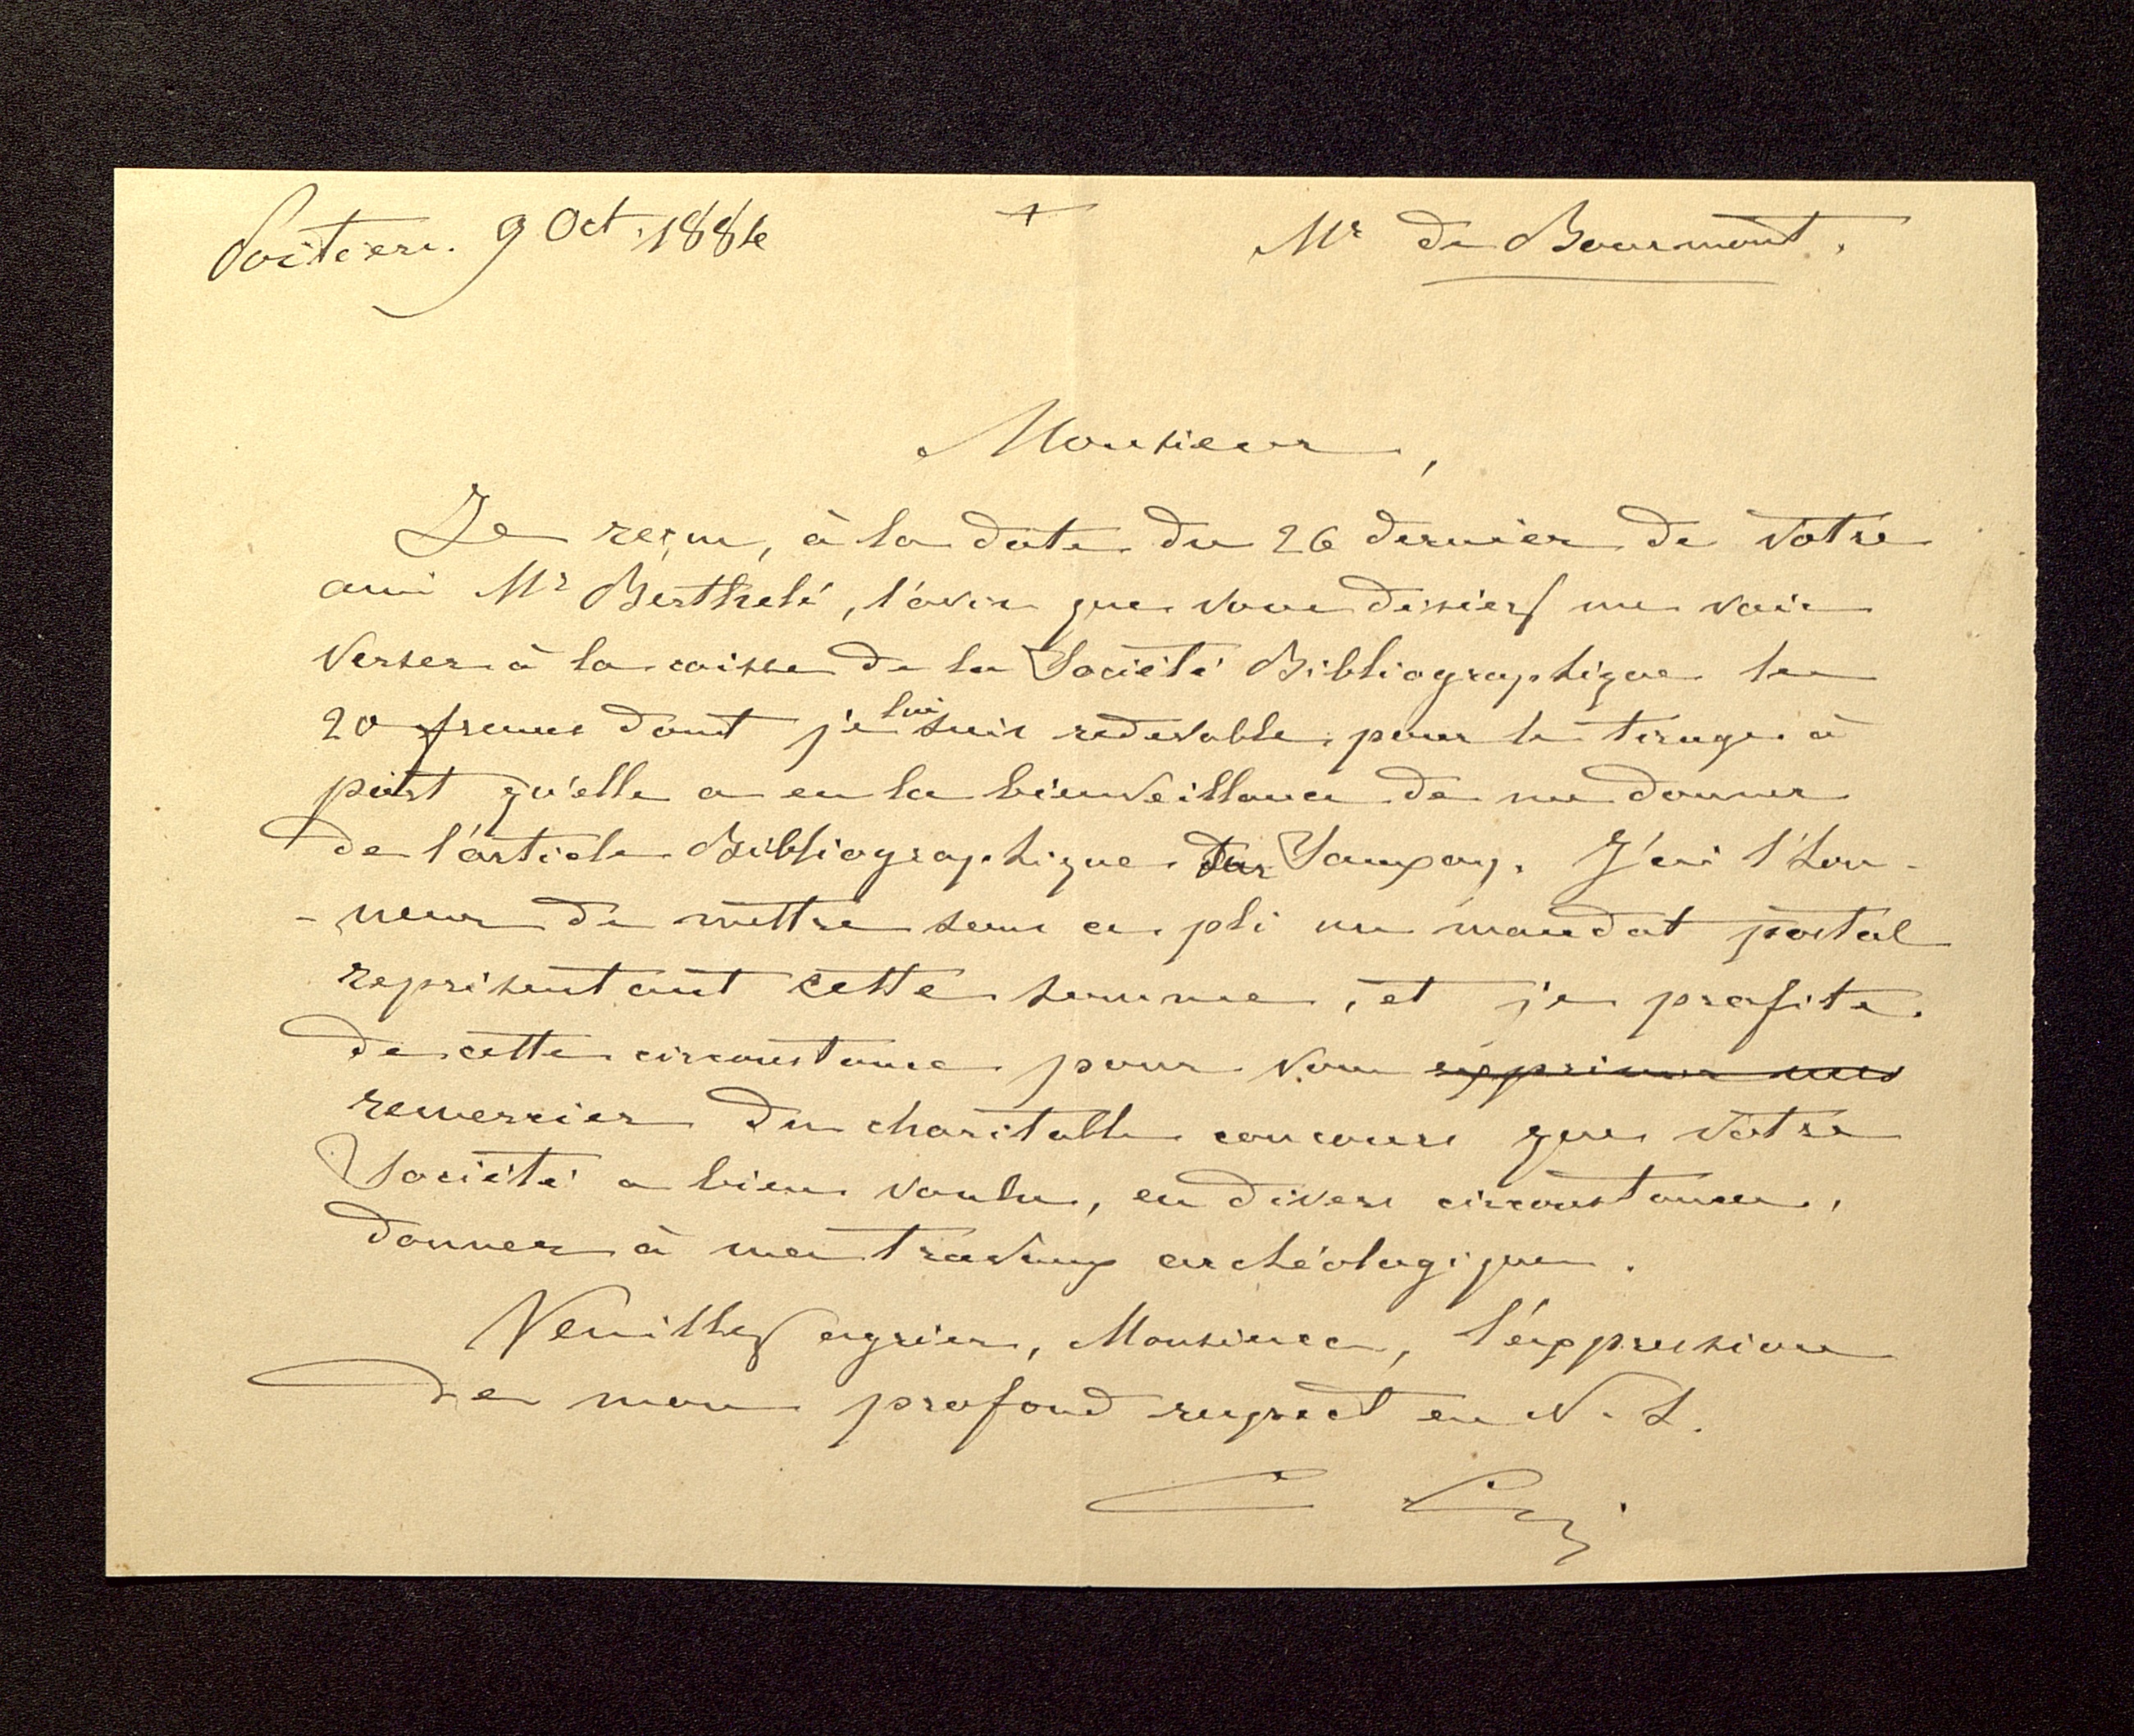 Poitiers. 9 Oct. 1884
+
Mr de Bourmont.
Monsieur,
Je reçus, à la date du 26 dernier de votre
ami Mr Berthelé, l'avis que vous désiriez me voir
verser à la caisse de la Société Bibliographique les
20 francs dont je lui suis redevable, pour le tirage à
part qu'elle a eu la bienveillance de me donner
de l'article Bibliographique sur Sanxay. J'ai l'hon-
-neur de mettre sous ce pli un mandat postal
représentant cette somme, et je profite
de cette circonstance pour vous exprimer mes
remercier du charitable concours que votre
Société a bien voulu, en divers circonstances,
donner à mes travaux archéologiques.
Veuillez agréer, Monsieur, l'expression
de mon profond respect en N. S.